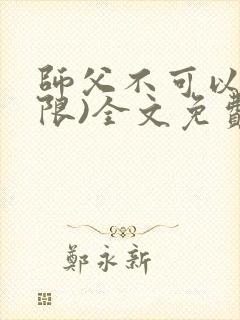 師父不可以
限)全文免費
鄭永新